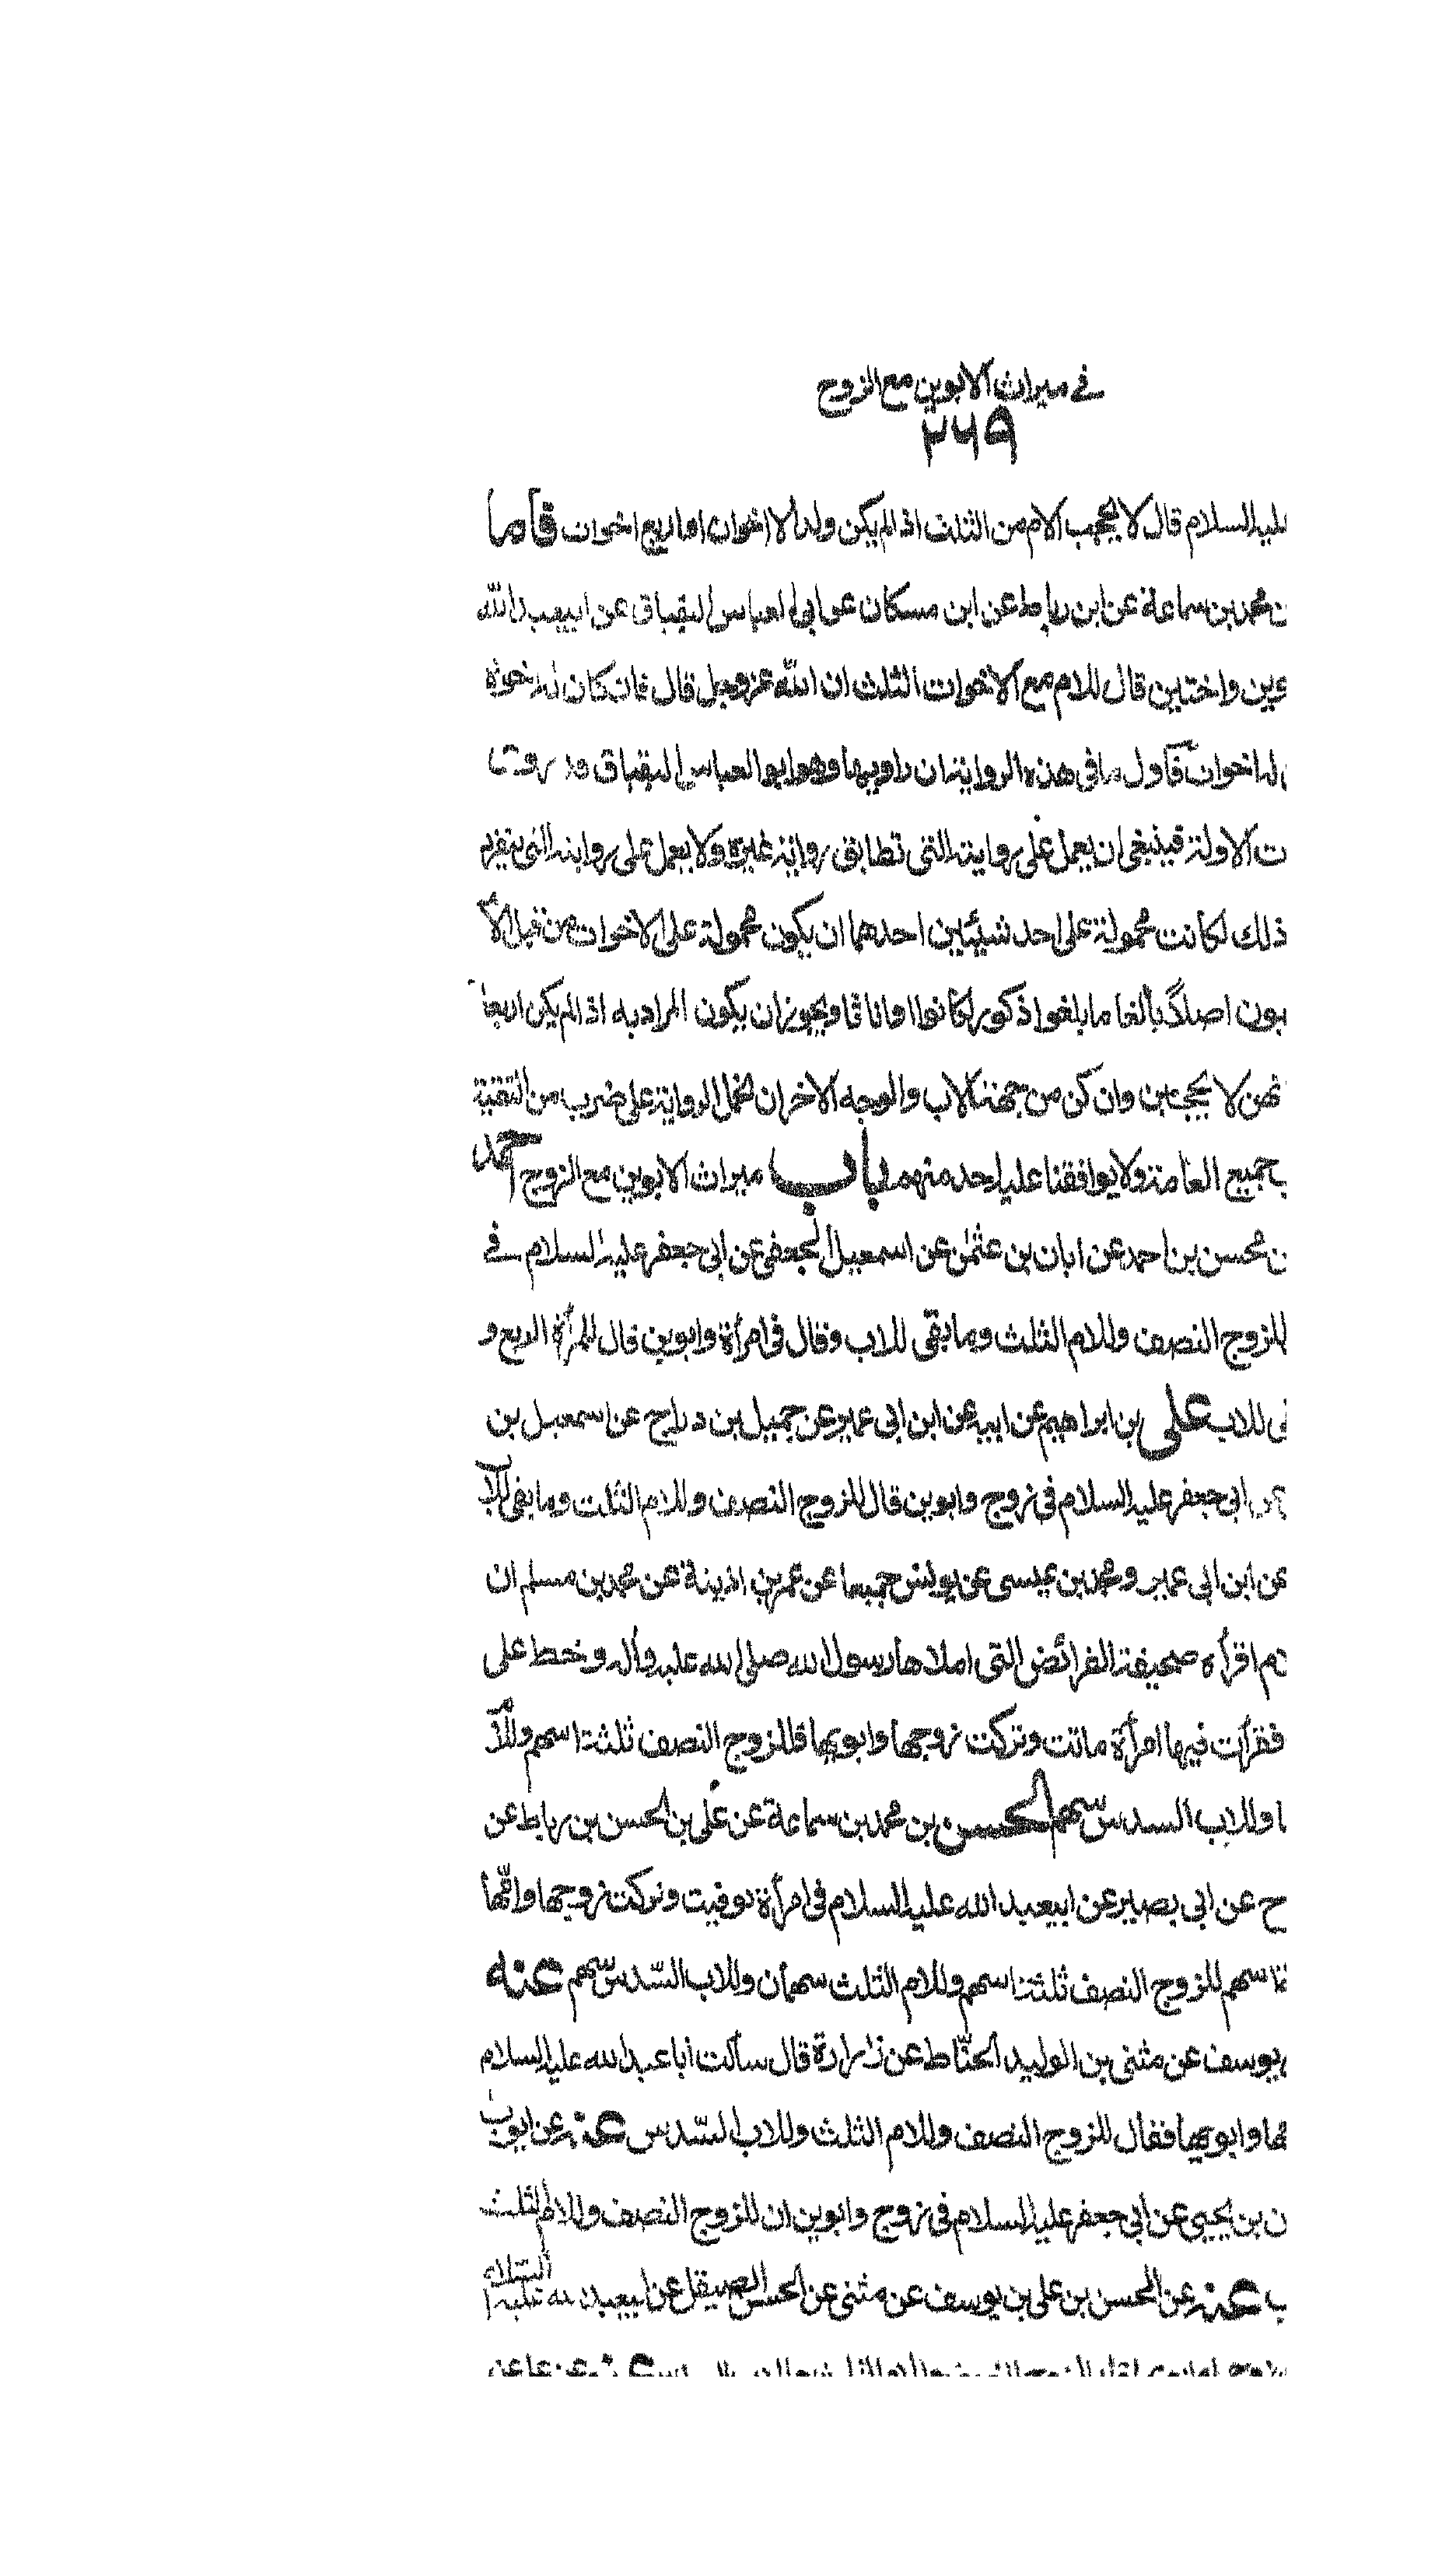 في ميراث الابوين مع الزوج
٢٦٩
عليه السلام قال لا يحجب الام من الثلث اذا لم يكن ولد الا اخوان او اربع اخوات فاما
محمد بن سماعة عن ابن رباط عن ابن مسكان عن ابي العباس البقباق عن ابيعبد الله
واختين قال للام مع الاخوات الثلث ان الله عز وجل قال فان كان له اخوة
له اخوات فاول ما في هذه الرواية ان راويها وهو ابو العباس البقباق قد روى
الاولة فينبغي ان يعمل على روايته التي تطابق رواية غيره ولا يعمل على روايته التي يتفرد
ذلك لكانت محمولة على احد شيئين احدهما ان يكون محمولة على الاخوات من قبل الا
اصلا بالغا ما بلغوا ذكورا كانوا او اناثا ويجوز ان يكون المراد به اذا لم يكن اربعا
لا يحجبن وان كن من جهة الاب والوجه الاخر ان تحمل الرواية على ضرب من التقية
جميع العامة ولا يوافقنا عليه احد منهم باب ميراث الابوين مع الزوج احمد
محسن بن احمد عن ابان بن عثمن عن اسمعيل الجعفي عن ابي جعفر عليه السلام في
للزوج النصف وللام الثلث وما بقى للاب وقال في امرأة وابوين قال للمرأة الربع و
للاب على بن ابراهيم عن ابيه عن ابن ابي عمير عن جميل بن دراج عن اسمعيل بن
ابي جعفر عليه السلام في زوج وابوين قال للزوج النصف وللام الثلث وما بقى للاب
عن ابن ابي عمير ومحمد بن عيسى عن يونس جميعا عن عمر بن اذينة عن محمد بن مسلم ان
اقرأه صحيفة الفرائض التي املاها رسول الله صلى الله عليه وآله وخط على
فقرأت فيها امرأة ماتت وتركت زوجها وابويها فللزوج النصف ثلثة اسهم وللام
وللاب السدس سهم الحسن بن محمد بن سماعة عن على بن الحسن بن رباط عن
عن ابي بصير عن ابيعبد الله عليه السلام في امرأة توفيت وتركت زوجها وامها
اسهم للزوج النصف ثلثة اسهم وللام الثلث سهمان وللاب السدس سهم عنه
يوسف عن مثنى بن الوليد الحناط عن زرارة قال سألت ابا عبد الله عليه السلام
وابويها فقال للزوج النصف وللام الثلث وللاب السدس عنه عن ايوب
بن يحيى عن ابي جعفر عليه السلام في زوج وابوين ان للزوج النصف وللام الثلث
عنه عن الحسن بن على بن يوسف عن مثنى عن الحسن الصيقل عن ابيعبد الله عليه السلام